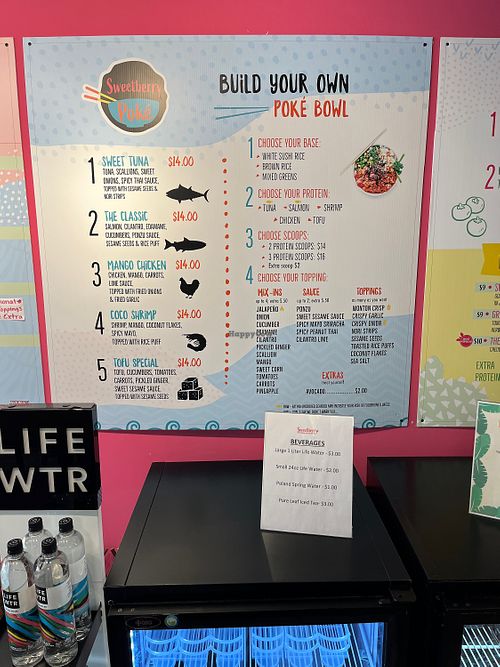 Sweetberry
Poké
BUILD YOUR OWN
POKÉ BOWL
1 SWEET TUNA $14.00
TUNA, SCALLIONS, SWEET
ONIONS, SPICY THAI SAUCE,
TOPPED WITH SESAME SEEDS &
NORI STRIPS
2 THE CLASSIC $14.00
SALMON, CILANTRO, EDAMAME,
CUCUMBERS, PONZU SAUCE,
SESAME SEEDS & RICE PUFF
3 MANGO CHICKEN $14.00
CHICKEN, MANGO, CARROTS,
LIME SAUCE,
TOPPED WITH FRIED ONIONS
& FRIED GARLIC
4 COCO SHRIMP $14.00
SHRIMP, MANGO, COCONUT FLAKES,
SPICY MAYO,
TOPPED WITH RICE PUFF
5 TOFU SPECIAL $14.00
TOFU, CUCUMBERS, TOMATOES,
CARROTS, PICKLED GINGER,
SWEET SESAME SAUCE,
TOPPED WITH SESAME SEEDS
1 CHOOSE YOUR BASE:
WHITE SUSHI RICE
BROWN RICE
MIXED GREENS
2 CHOOSE YOUR PROTEIN:
TUNA SALMON SHRIMP
CHICKEN TOFU
3 CHOOSE SCOOPS:
2 PROTEIN SCOOPS: $14
3 PROTEIN SCOOPS: $16
Extra scoop $2
4 CHOOSE YOUR TOPPING:
MIX-INS
up to 4; extra $.50
JALAPEÑO
ONION
CUCUMBER
EDAMAME
CILANTRO
PICKLED GINGER
SCALLION
MANGO
SWEET CORN
TOMATOES
CARROTS
PINEAPPLE
SAUCE
up to 2; extra $.50
PONZU
SWEET SESAME SAUCE
SPICY MAYO SRIRACHA
SPICY PEANUT THAI
CILANTRO LIME
TOPPINGS
as many as you want
WONTON CRISP
CRISPY GARLIC
CRISPY ONION
NORI STRIPS
SESAME SEEDS
TOASTED RICE PUFFS
COCONUT FLAKES
SEA SALT
EXTRAS
treat yourself
AVOCADO $2.00
HappyCow
LIFE
WTR
Sweetberry
BEVERAGES
Large 1 Liter Life Water - $3.00
Small 24oz Life Water - $3.00
Poland Spring Water - $1.00
Pure Leaf Iced Tea- $3.00
LIFE
WTR
1
2
$9
$9
$10
EXTRA
PROTEIN